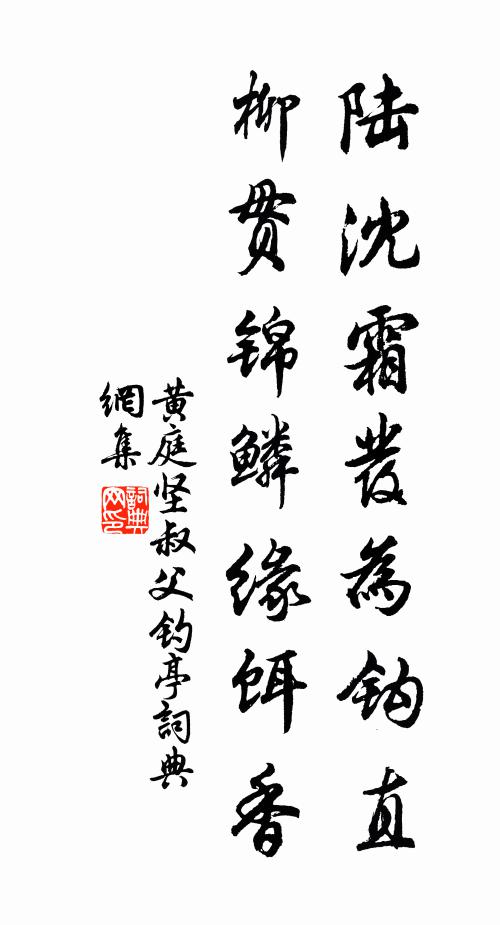 陆沈霜发為钩直
柳贯锦鳞缘饵香
黄庭坚叔父钓亭詞典
網集
詞典网印